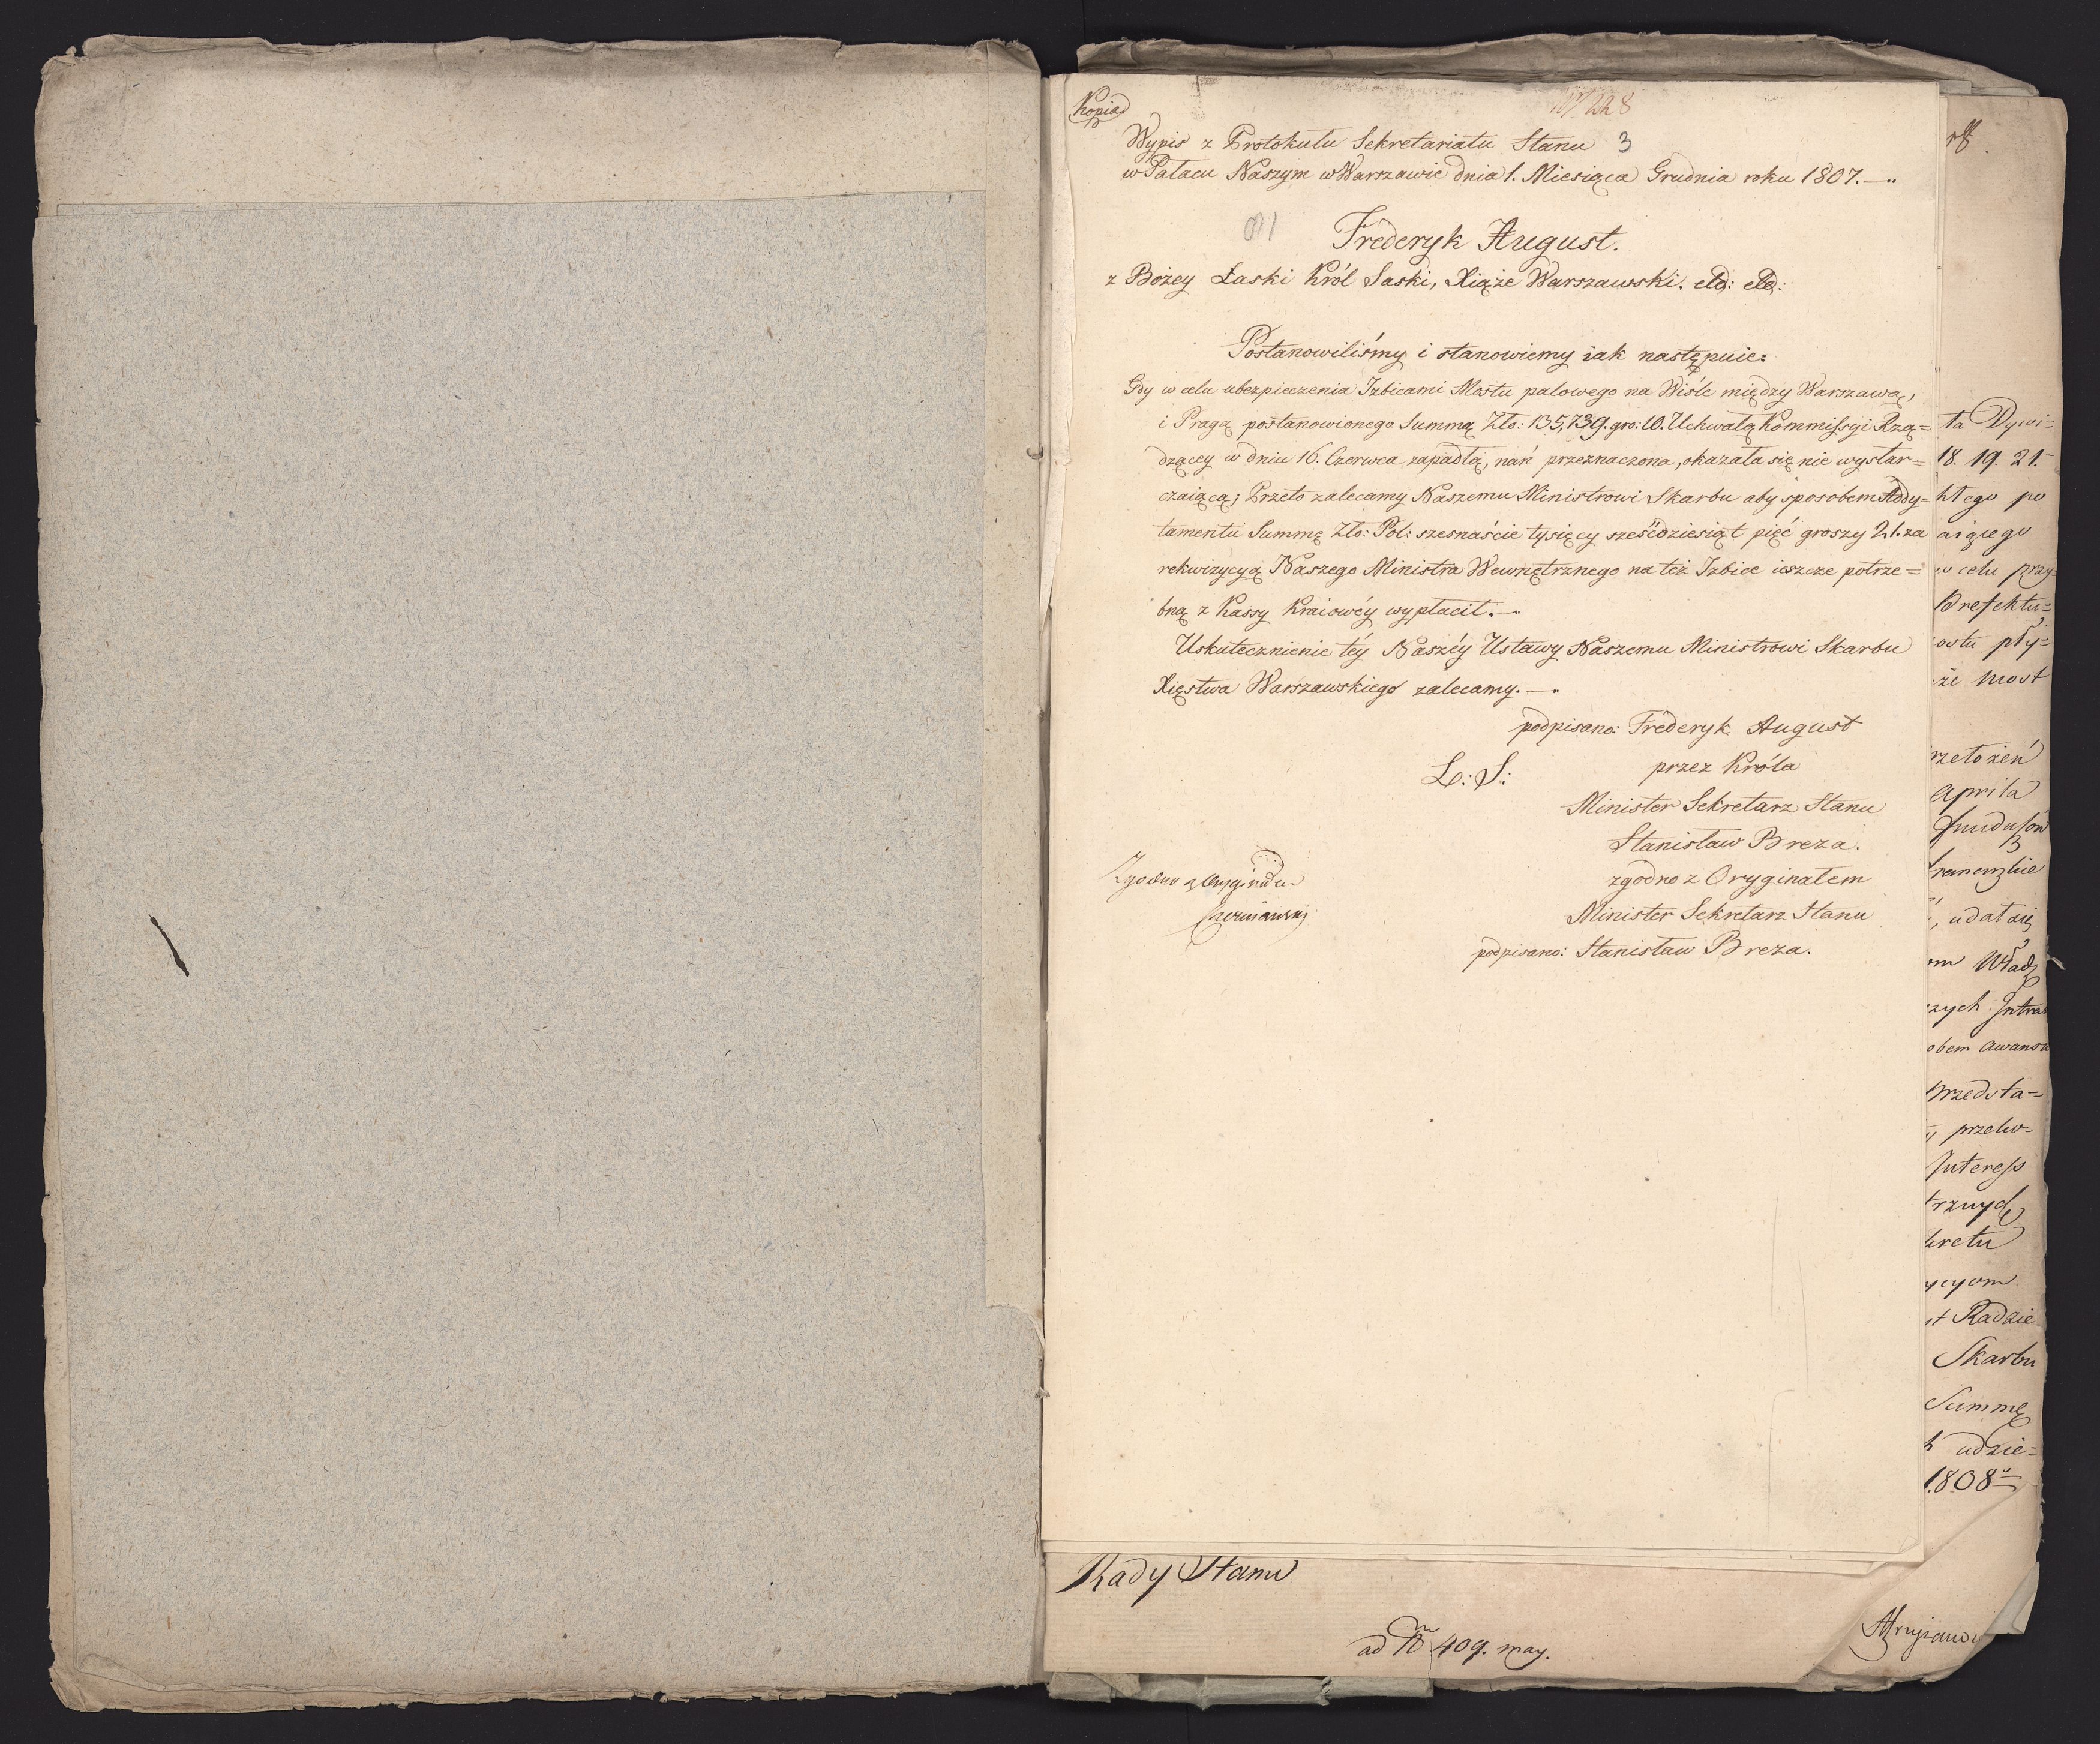 Kopia
228
Wypis z Protokułu Sekretariatu Stanu 3
w Pałacu Naszym w Warszawie dnia 1. Miesiąca Grudnia roku 1807.
Fréderyk August.
z Bożey Łaski Król Saski, Xiąże Warszawski. etc: etc:
Postanowiliśmy i stanowiemy iak następuie:
Gdy w celu ubezpieczenia Izbicami Mostu palowego na Wiśle między Warszawą,
i Pragą postanowionego Summa Zło: 135,739. gro: 10. Uchwałą Kommissyi Rzą=
dzącey w dniu 16. Czerwca zapadłą, nań przeznaczona, okazała się nie wystar=
czaiącą; Przeto zalecamy Naszemu Ministrowi Skarbu aby sposobem Addy=
tamentu Summę Zło: Pol: szesnaście tysięcy sześćdziesiąt pięć groszy 21. za
rekwizycyą Naszego Ministra Wewnętrznego na też Izbice ieszcze potrze=
bną z Kassy Kraiowéy wypłacił.
Uskutecznienie téy Naszéy Ustawy Naszemu Ministrowi Skarbu
Xięstwa Warszawskiego zalecamy.
podpisano: Fréderyk August
L: S: przez Króla
Minister Sekretarz Stanu
Stanisław Breza.
zgodno z Oryginałem
Minister Sekretarz Stanu
podpisano: Stanisław Breza.
Zgodno z Oryginałem
ta Dywi=
18. 19. 21.
htego po
aiącego
w celu przy=
Prefektu=
ostu pły=
że most
rzełożeń
Aprila
funduszów
, udał się
om Władz
szych Intra
obem awansu
przedsta=
przeło=
Interess
trznych
kretu
ycyom
st Radzie
Skarbu
Summę
h udzie=
1808
Rady Stanu
ad No 409. may.